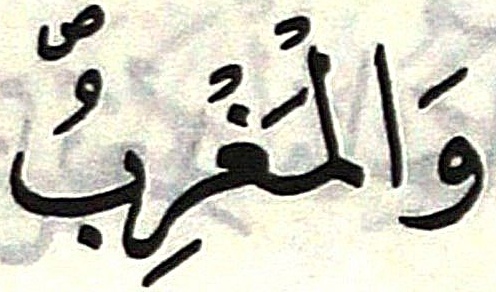 وَالْمَغْرِبُ ۖ